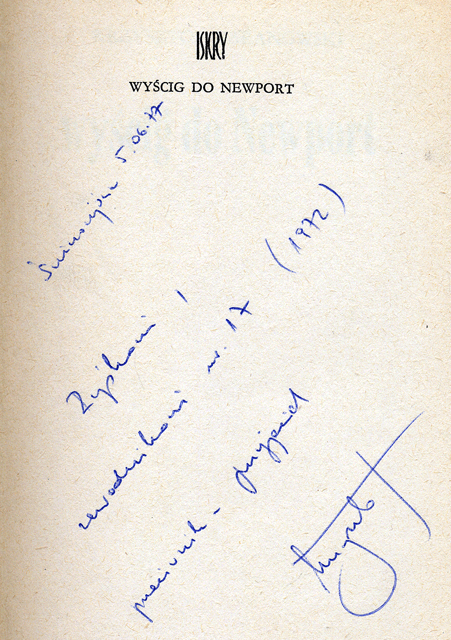 ISKRY
WYŚCIG DO NEWPORT
Świnoujście 5.06.77
Zbyszkowi!
zawodnikowi nr. 17 (1972)
przeciwnik - przyjaciel